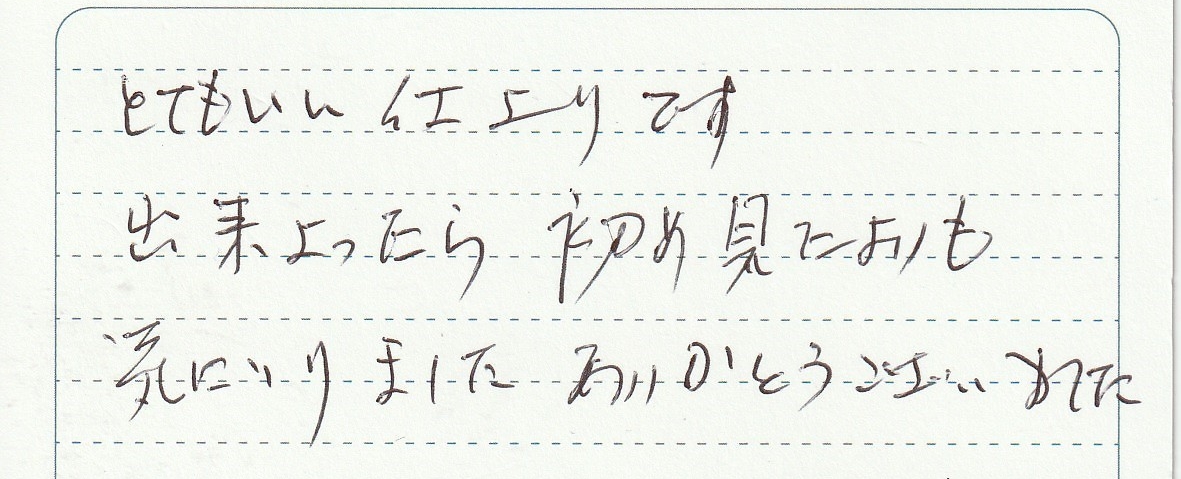 とてもいい仕上りです
出来上ったら初め見たよりも
気にいりました ありがとうございました